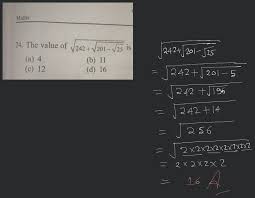 Maths
24. The value of √242+√201-√25 is
(a) 4 (b) 11
(c) 12 (d) 16
√242+√201-√25
= √242+√201-5
= √242+√196
= √242+14
= √256
= √2×2×2×2×2×2×2×2
= 2×2×2×2
= 16 A